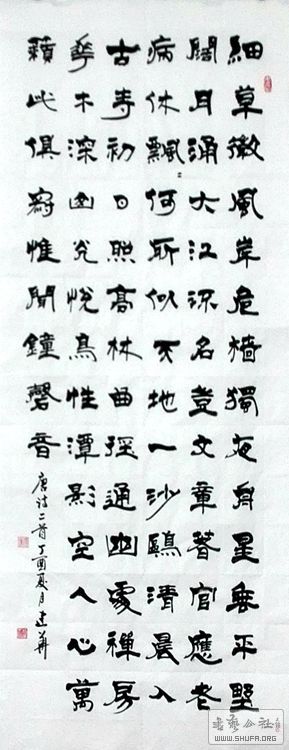 細草微風岸危檣獨夜舟星垂平野
闊月涌大江流名豈文章著官應老
病休飄〻何所似天地一沙鷗清晨入
古寺初日照高林曲徑通幽處禪房
華木深山光悅鳥性潭影空人心萬
籟此俱寂惟聞鐘磬音
唐詩二首丁酉夏月建華
書藝公社
WWW.SHUFA.ORG